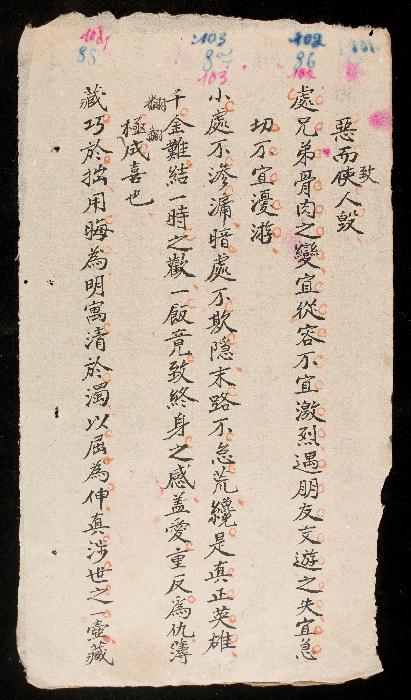 惡而使人毀
致
處兄弟骨肉之變宜從容不宜激烈遇朋友交遊之失宜急
切不宜優游
小處不滲漏暗處不欺隐末路不怠荒纔是真正英雄
千金難結一時之歡一飯竟致終身之感盖愛重反為仇薄
翻翻
極成喜也
藏巧於拙用晦為明寓清於濁以屈為伸真涉世之一壺藏
102
86
102
103
103
88